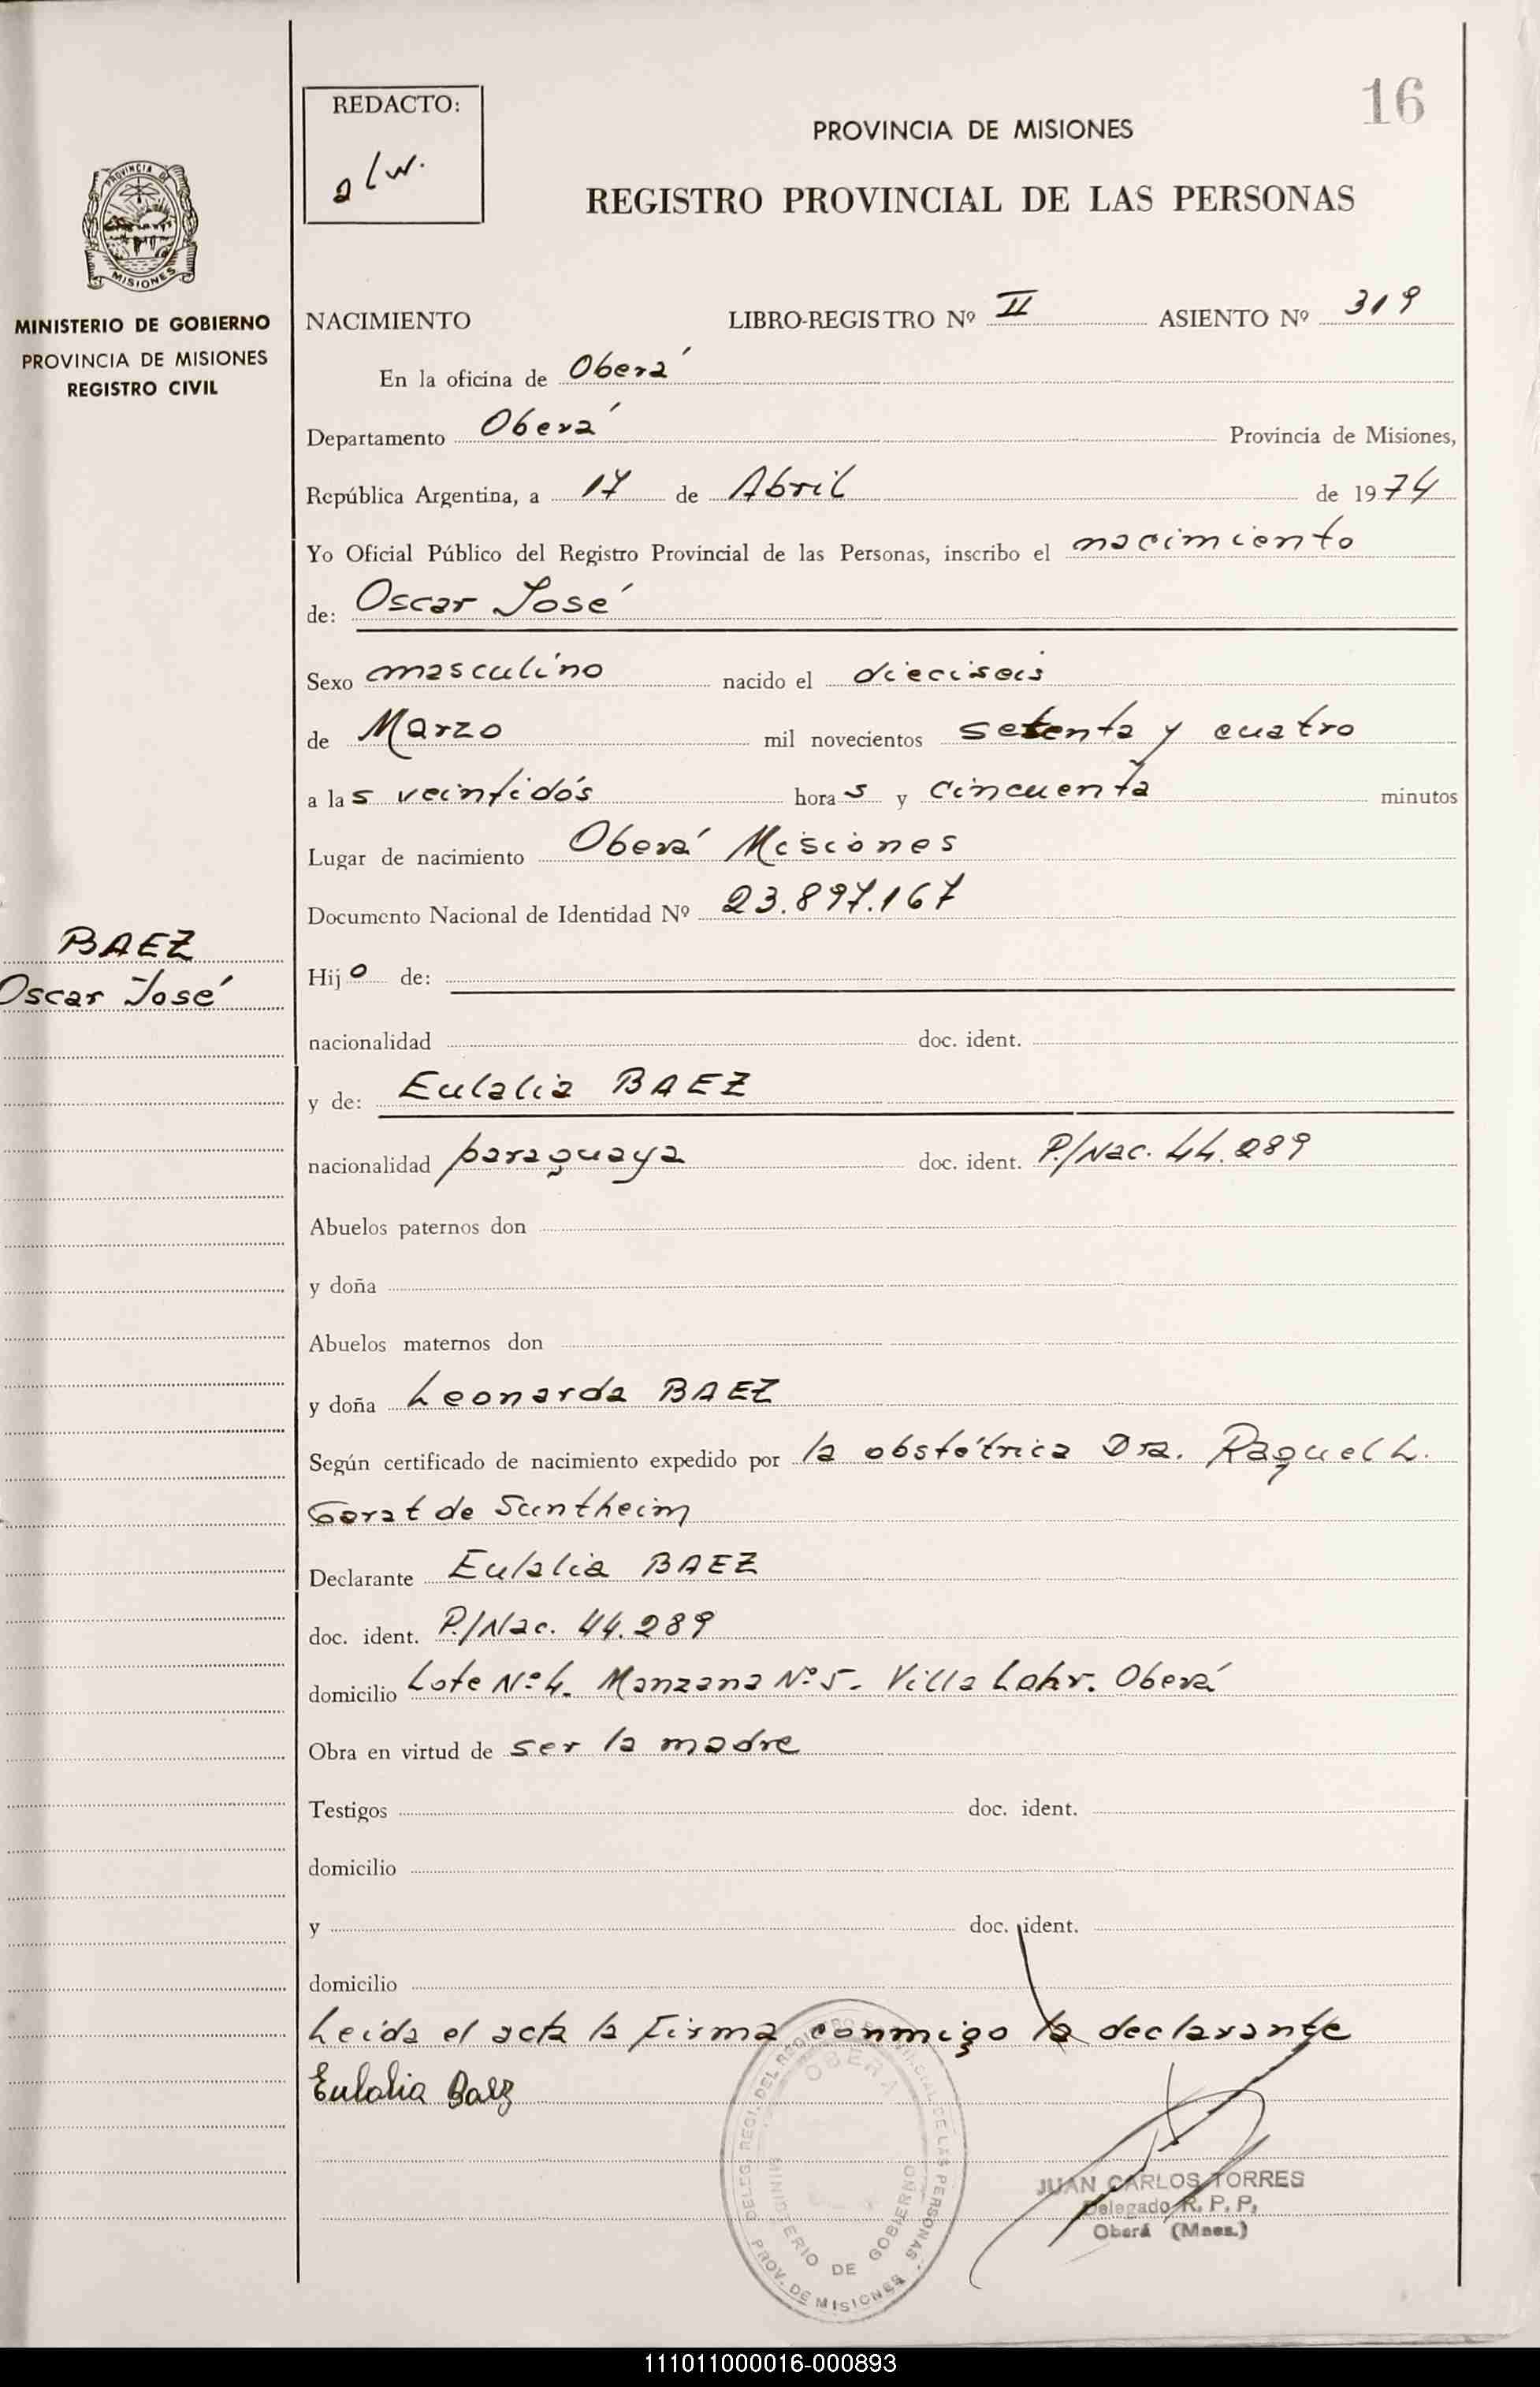 16
REDACTO:
alw.
PROVINCIA DE MISIONES
REGISTRO PROVINCIAL DE LAS PERSONAS
PROVINCIA DE
MISIONES
MINISTERIO DE GOBIERNO
PROVINCIA DE MISIONES
REGISTRO CIVIL
NACIMIENTO LIBRO-REGISTRO Nº II ASIENTO Nº 319
En la oficina de Oberá
Departamento Oberá Provincia de Misiones,
República Argentina, a 17 de Abril de 1974
Yo Oficial Público del Registro Provincial de las Personas, inscribo el nacimiento
de: Oscar José
Sexo masculino nacido el dieciseis
de Marzo mil novecientos setenta y cuatro
a las veintidós horas y cincuenta minutos
Lugar de nacimiento Oberá Misiones
Documento Nacional de Identidad Nº 23.897.167
BAEZ
Oscar José
Hijo de:
nacionalidad doc. ident.
y de: Eulalia BAEZ
nacionalidad paraguaya doc. ident. P./Nac. 44.289
Abuelos paternos don
y doña
Abuelos maternos don
y doña Leonarda BAEZ
Según certificado de nacimiento expedido por la obstétrica Dra. Raquel L.
Garat de Suntheim
Declarante Eulalia BAEZ
doc. ident. P./Nac. 44.289
domicilio Lote Nº 4. Manzana Nº 5. Villa Lohr. Oberá
Obra en virtud de ser la madre
Testigos doc. ident.
domicilio
y doc. ident.
domicilio
Leída el acta la firma conmigo la declarante
Eulalia Baez
OBERA
MINISTERIO DE GOBIERNO
PROV. DE MISIONES
JUAN CARLOS TORRES
Delegado R. P. P.
Oberá (Mnes.)
111011000016-000893